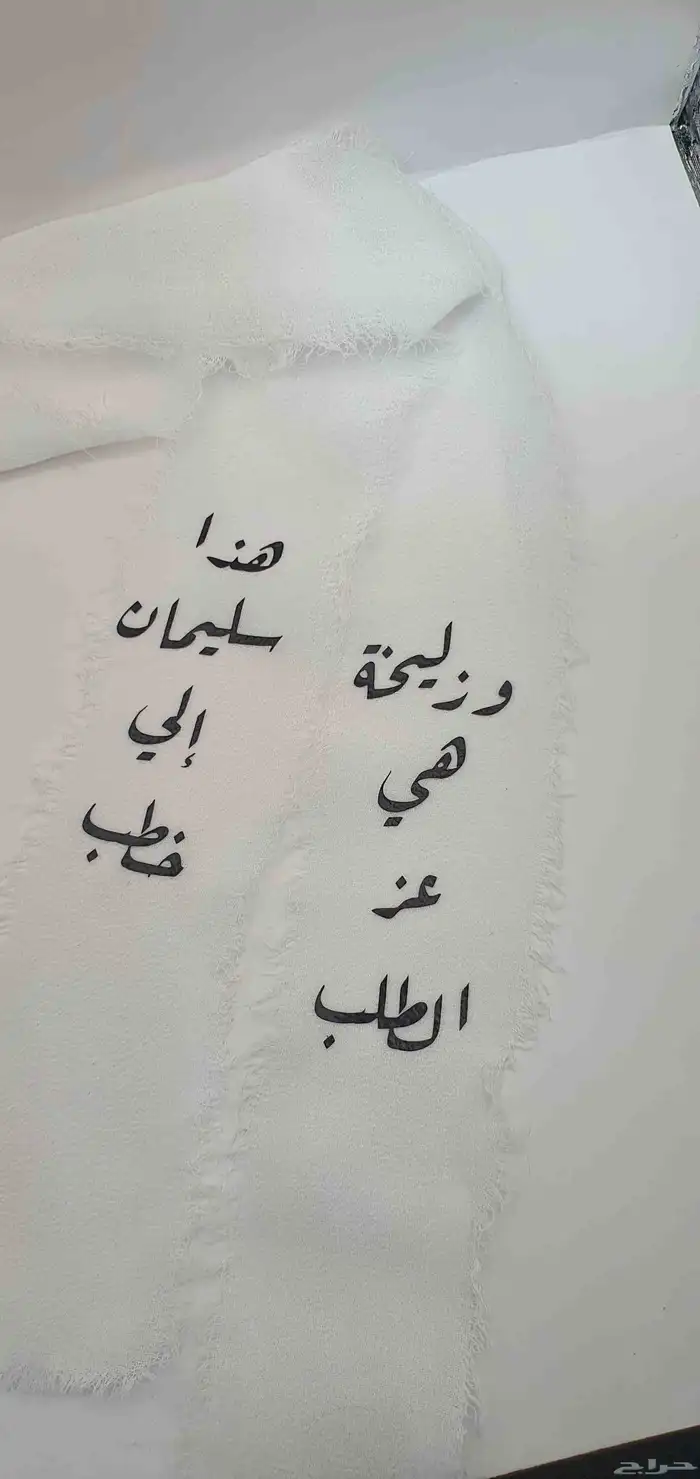 هذا
سليمان
إلي
خطب
وزليخة
هي
عز
الطلب
حراج